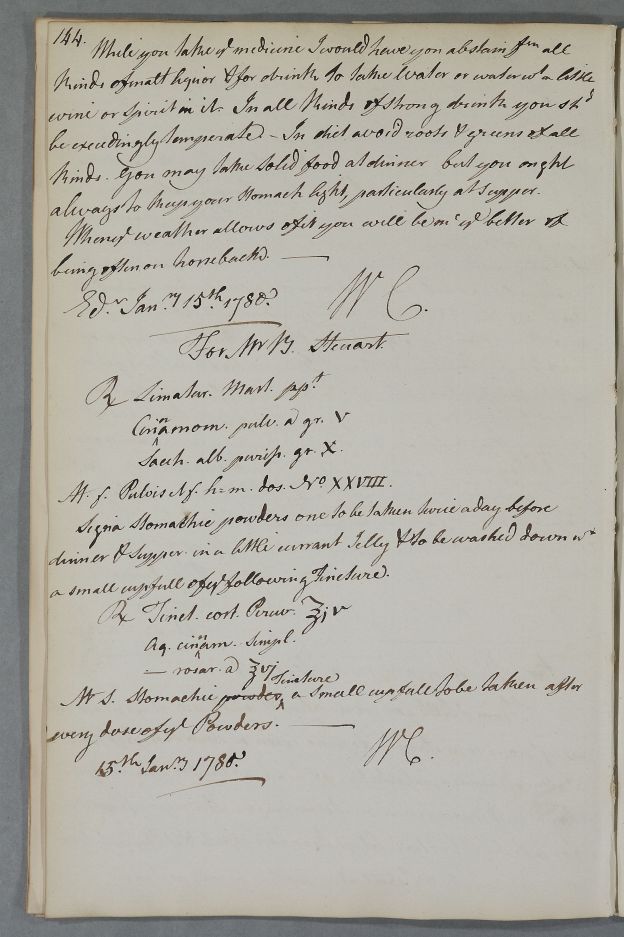 144.
While you take yr medicine I would have you abstain fm all
kinds of malt liquor & for drink to take water or water wt a little
wine or spirit in it. In all kinds of strong drink you shd
be exceedingly temperate - In diet avoid roots & greens of all
kinds. You may take solid food at dinner but you ought
always to keep your stomach light, particularly at supper.
When ye weather allows of it you will be mch ye better of
being often on horseback. —
Edr Janry 15th 1780.
WC.
For Mr B. Steuart.
℞ Limatur. Mart. ppt
Cinnamom. pulv. a gr. V
Sacch. alb. puriss. gr. X.
M. f. Pulvis h=m. dos. No XXVIII.
Signa Stomachic powders one to be taken twice a day before
dinner & supper in a little currant Jelly & to be washed down wt
a small cupfull of ye following Tincture.
℞ Tinct. cort. Peruv. ℥jv
Aq. cinnam. simpl.
— rosar. a ℥vj
M S. Stomachic powders Tincture, a small cupfull to be taken after
every dose of ye Powders. —
15th Janry 1780.
WC.